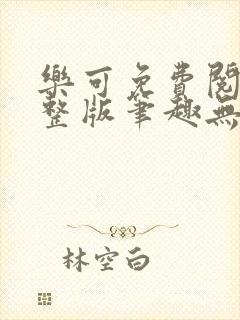 樂可免費閱
整版筆趣無
林空白